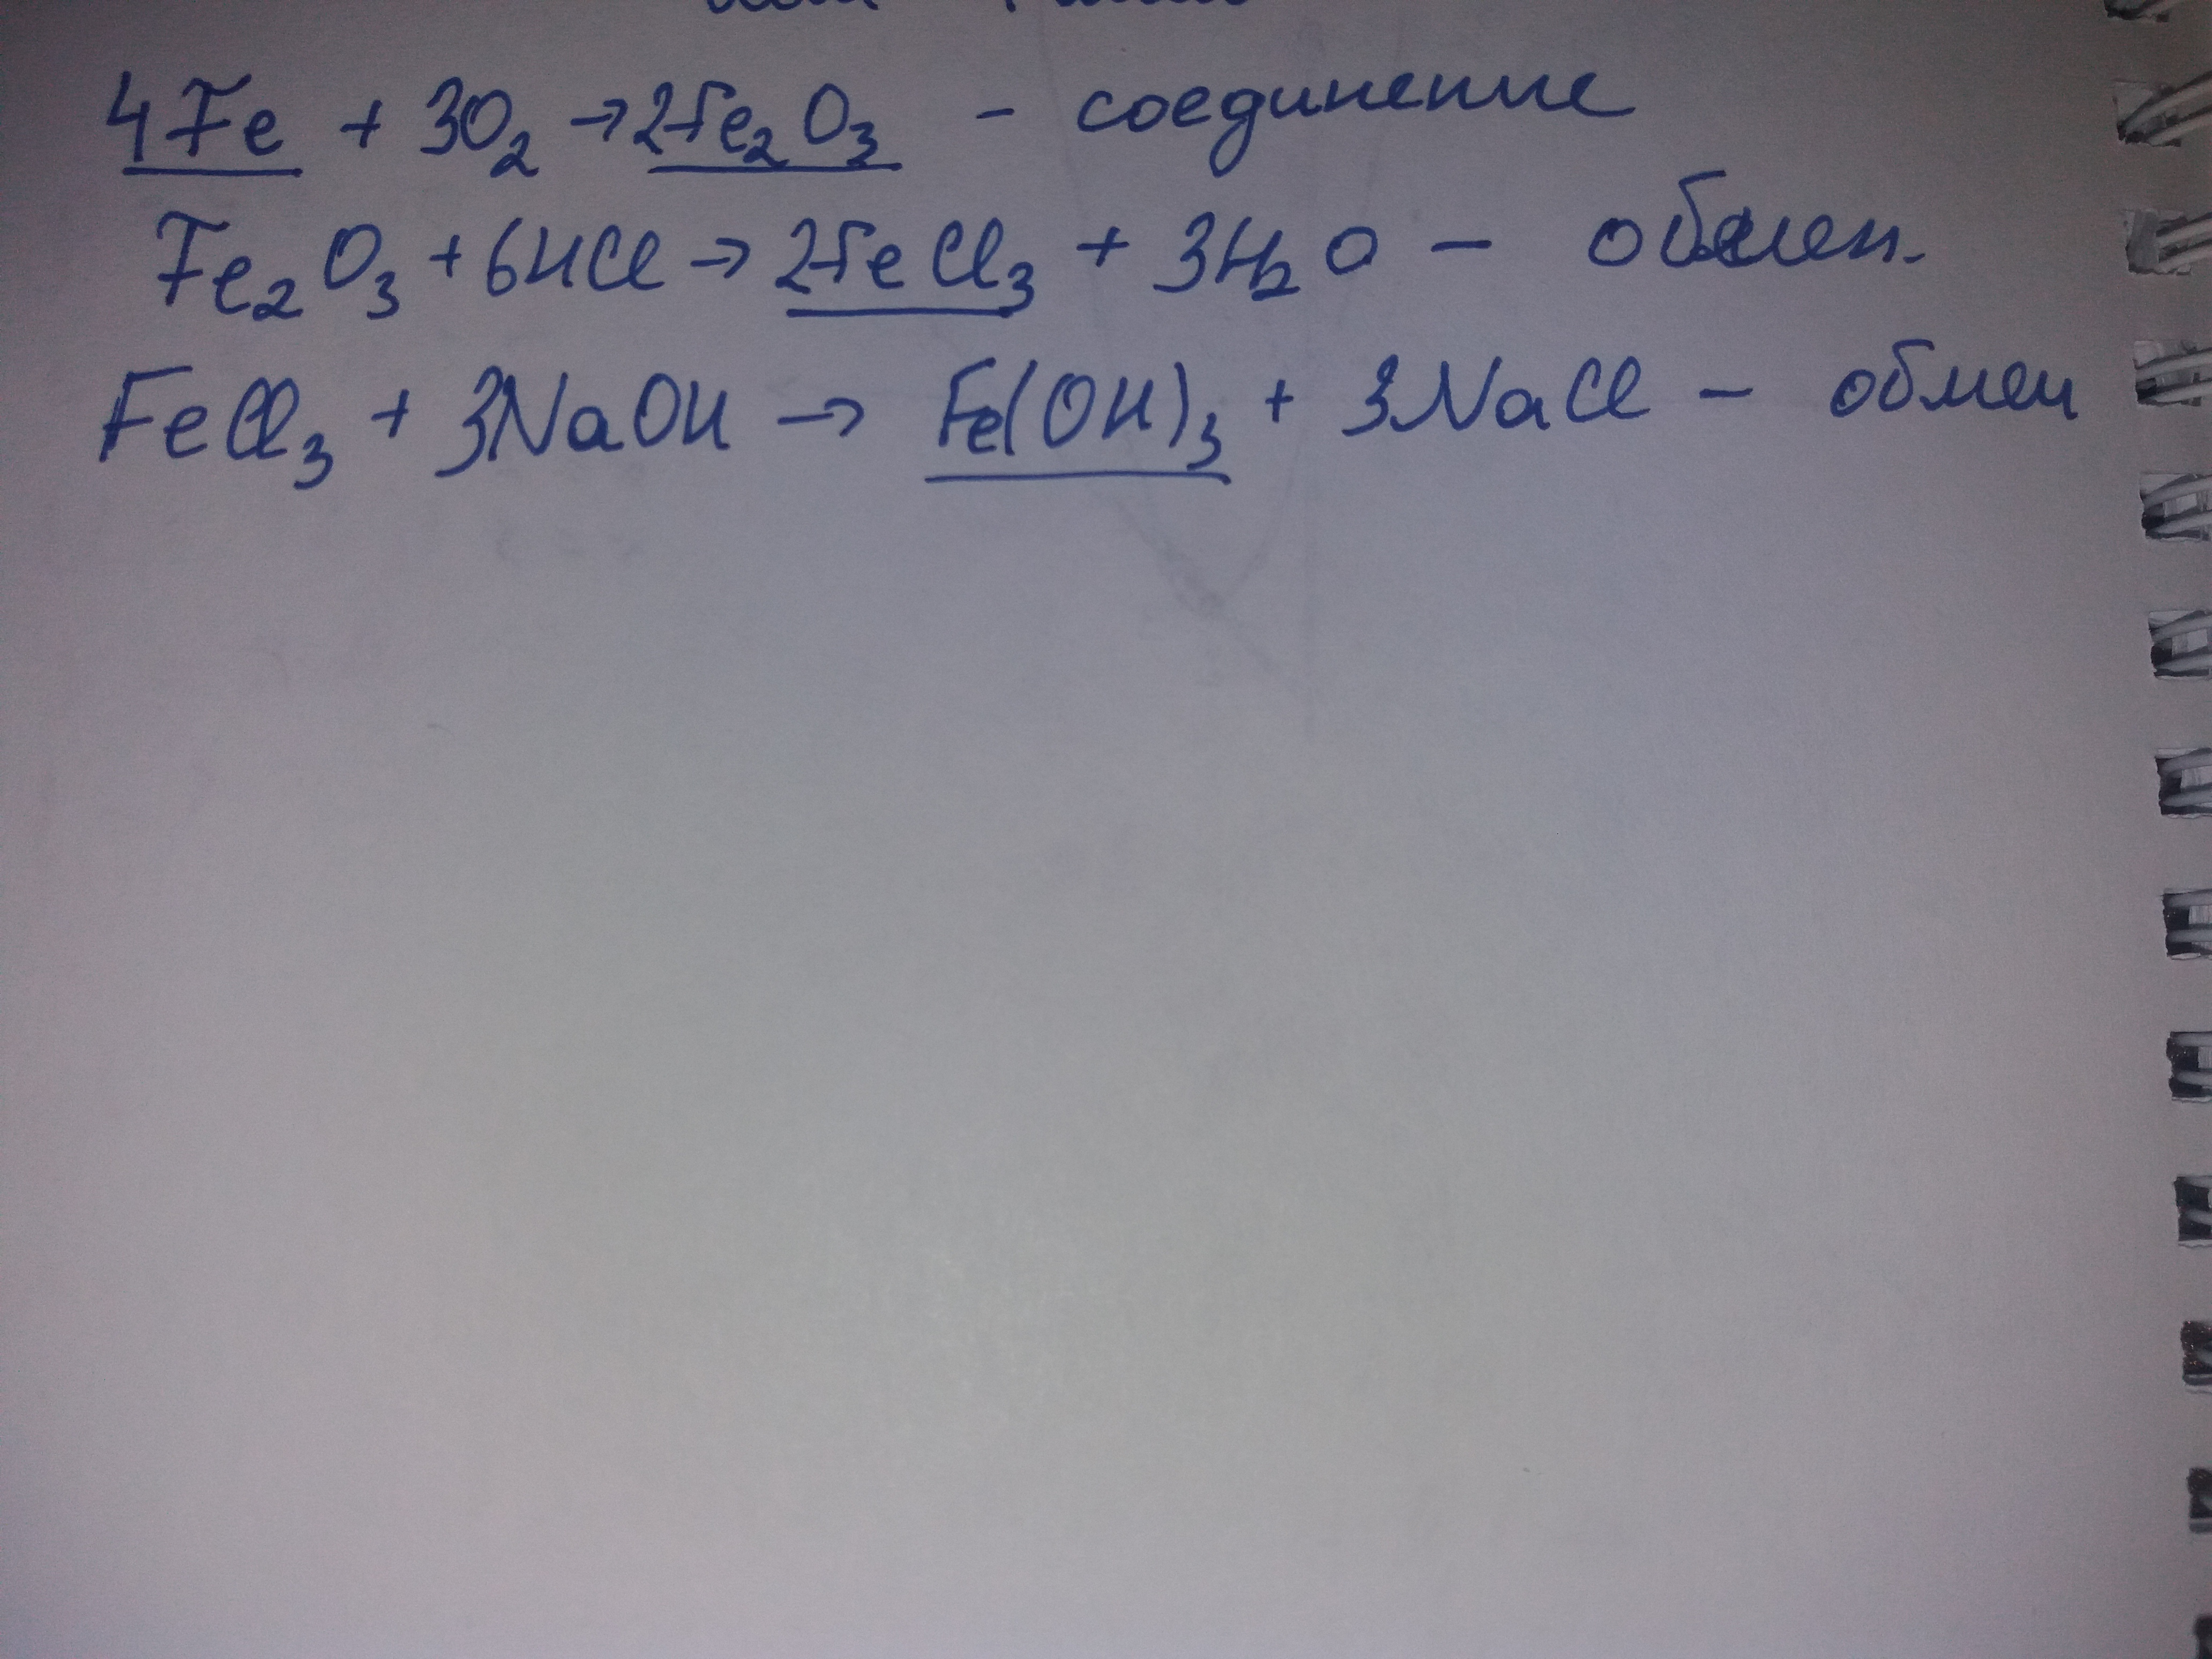 4Fe + 3O₂ → 2Fe₂O₃ - соединение
Fe₂O₃ + 6HCl → 2FeCl₃ + 3H₂O - обмен.
FeCl₃ + 3NaOH → Fe(OH)₃ + 3NaCl - обмен